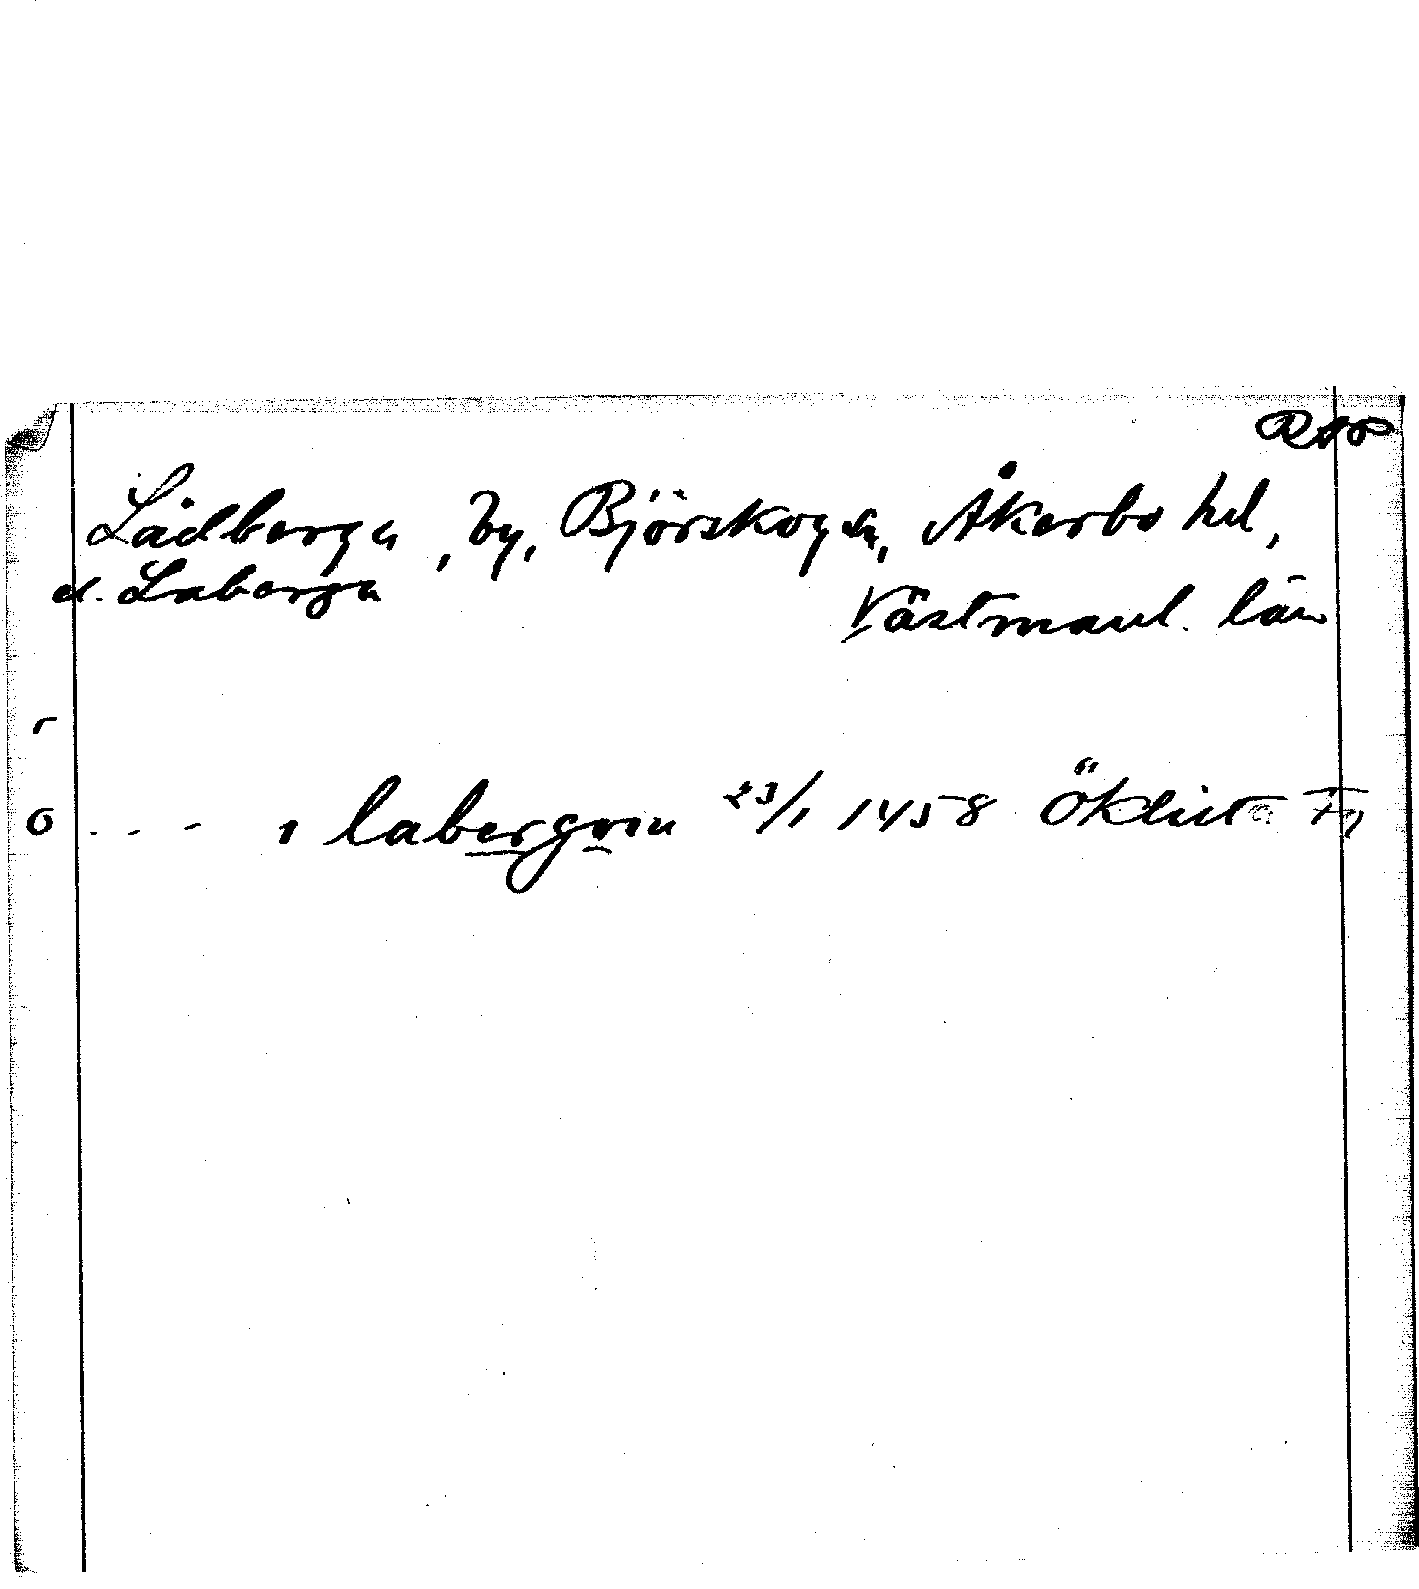 Lådberga, by, Björskog sn, Åkerbo hd,
el. Laberga
Västmanl. län
r
o - - - i labergom 23/1 1458 Öklut